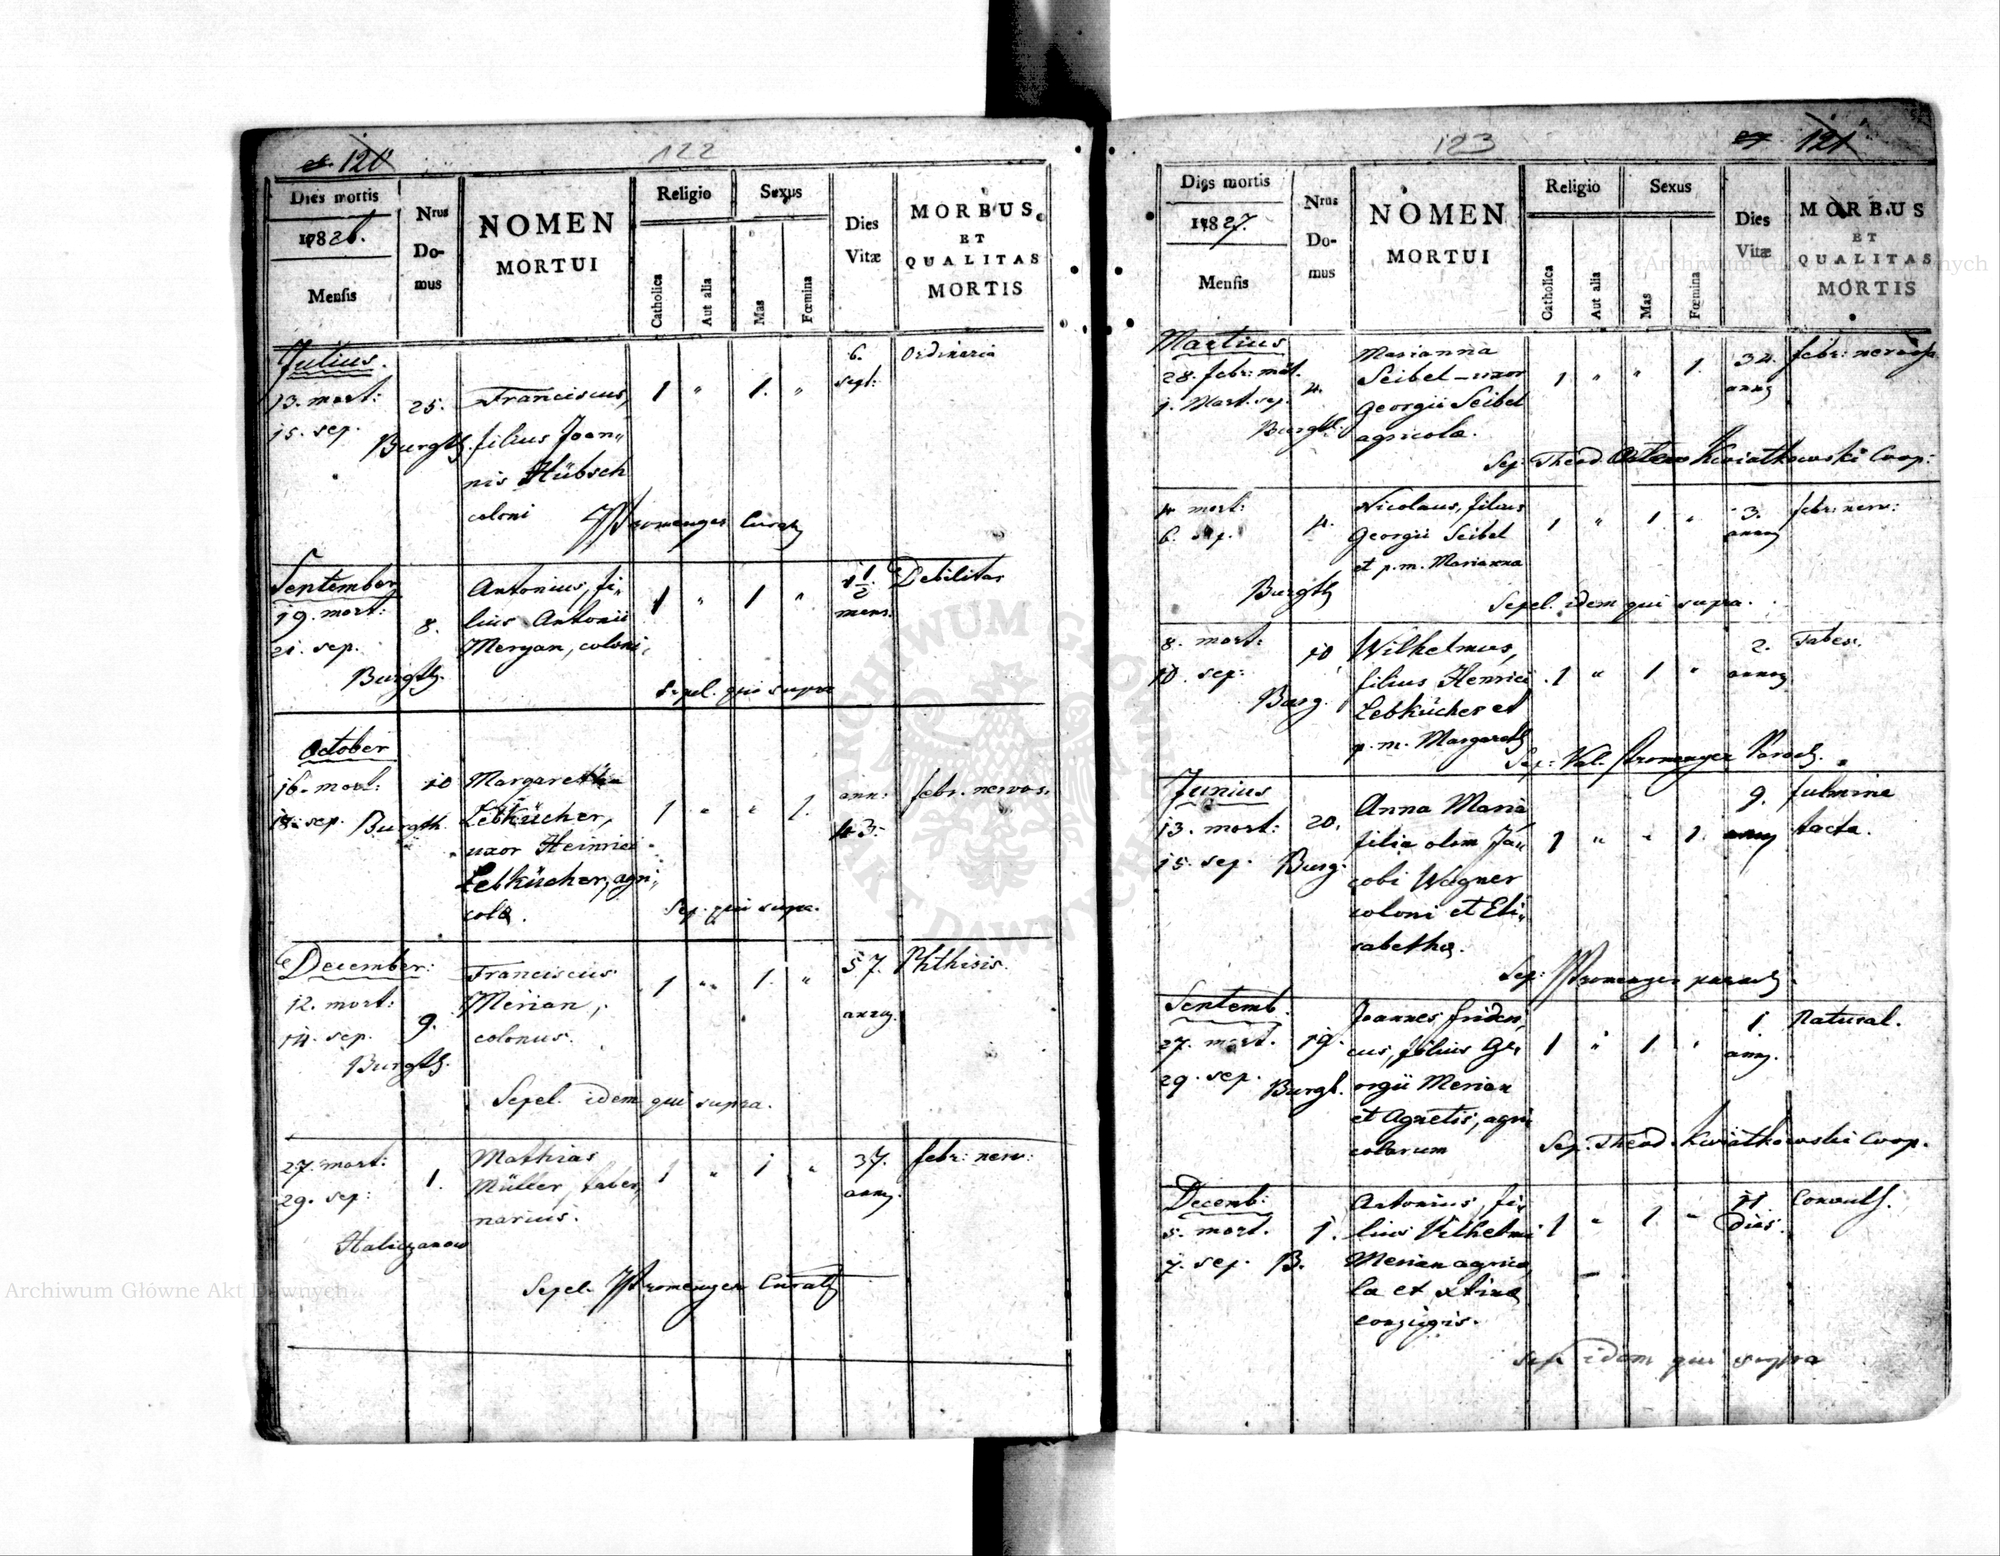 120
122
Dies mortis
1826.
Mensis
Nrus
Do-
mus
NOMEN
MORTUI
Religio
Catholica
Aut alia
Sexus
Mas
Fœmina
Dies
Vitæ
MORBUS
ET
QUALITAS
MORTIS
Julius.
13. mort:
15. sep.
25.
Burgth.
Franciscus,
filius Joan„
nis Hübsch
coloni
1 " 1. "
6.
sept:
Ordinaria
September
19. mort:
21. sep.
8.
Burgth.
Antonius, fi„
lius Antonii
Meryan, coloni.
1 " 1 "
1 1/2
mens.
Debilitas
Sepel. qui supra
October
16. mort:
18. sep.
10
Burgth.
Margaretha
Lebkücher,
uxor Heinrici
Lebkücher, agri„
colæ.
1 " " 1.
ann:
43.
febr. nervos.
Sep. qui supra.
December:
12. mort:
14. sep.
9.
Burgth.
Franciscus
Merian,
colonus.
1 " 1. "
57.
annor.
Phthisis.
Sepel. idem qui supra.
27. mort:
29. sep:
1.
Mathias
Müller, taber„
narius.
1 " 1 "
37.
annor.
febr: nerv:
Sepel. Stromenger Curat
123
121
Dies mortis
1827.
Mensis
Nrus
Do-
mus
NOMEN
MORTUI
Religio
Catholica
Aut alia
Sexus
Mas
Fœmina
Dies
Vitæ
MORBUS
ET
QUALITAS
MORTIS
Martius
28. febr: mort.
1. Mart. sep.
4.
Burgth.
Marianna
Seibel – uxor
Georgii Seibel
agricolæ.
1 " " 1.
32.
annor
febr: nervosa
Sep: Theod. Kwiatkowski Coop:
4 mort:
6. sep.
4.
Burgth
Nicolaus, filius
Georgii Seibel
et p. m. Marianna
1 " 1 "
3.
annor
febr: nerv:
Sepel. idem qui supra.
8. mort:
10. sep:
10
Burg.
Wilhelmus,
filius Henrici
Lebkücher et
p. m. Margareth
1 " 1 "
2.
annor
Tabes.
Sep: Val. Stromenger Paroch.
Junius
13. mort:
15. sep.
20.
Burg:
Anna Maria
filia olim Ja„
cobi Wagner
coloni et Eli„
sabethæ.
1 " " 1.
9.
annor
fulmine
tacta.
Sep: Stromenger paroch
Septemb.
27. mort.
29. sep.
19.
Burgt.
Joannes friderı„
cus, filius Ge„
orgii Merian
et Agnetis, agri
colarum
1 " 1. "
1.
ann.
Natural.
Sep. Theod. Kwiatkowski Coop.
Decemb:
5. mort.
7. sep. B.
1.
Antonius, fi„
lius Vilhelmi
Merian agrico„
la et
conjugis.
1 " 1. "
11.
dies.
Convuls.
Sep. idem qui supra
ARCHIWUM GŁÓWNE
AKT DAWNYCH
Archiwum Główne Akt Dawnych
Archiwum Główne Akt Dawnych